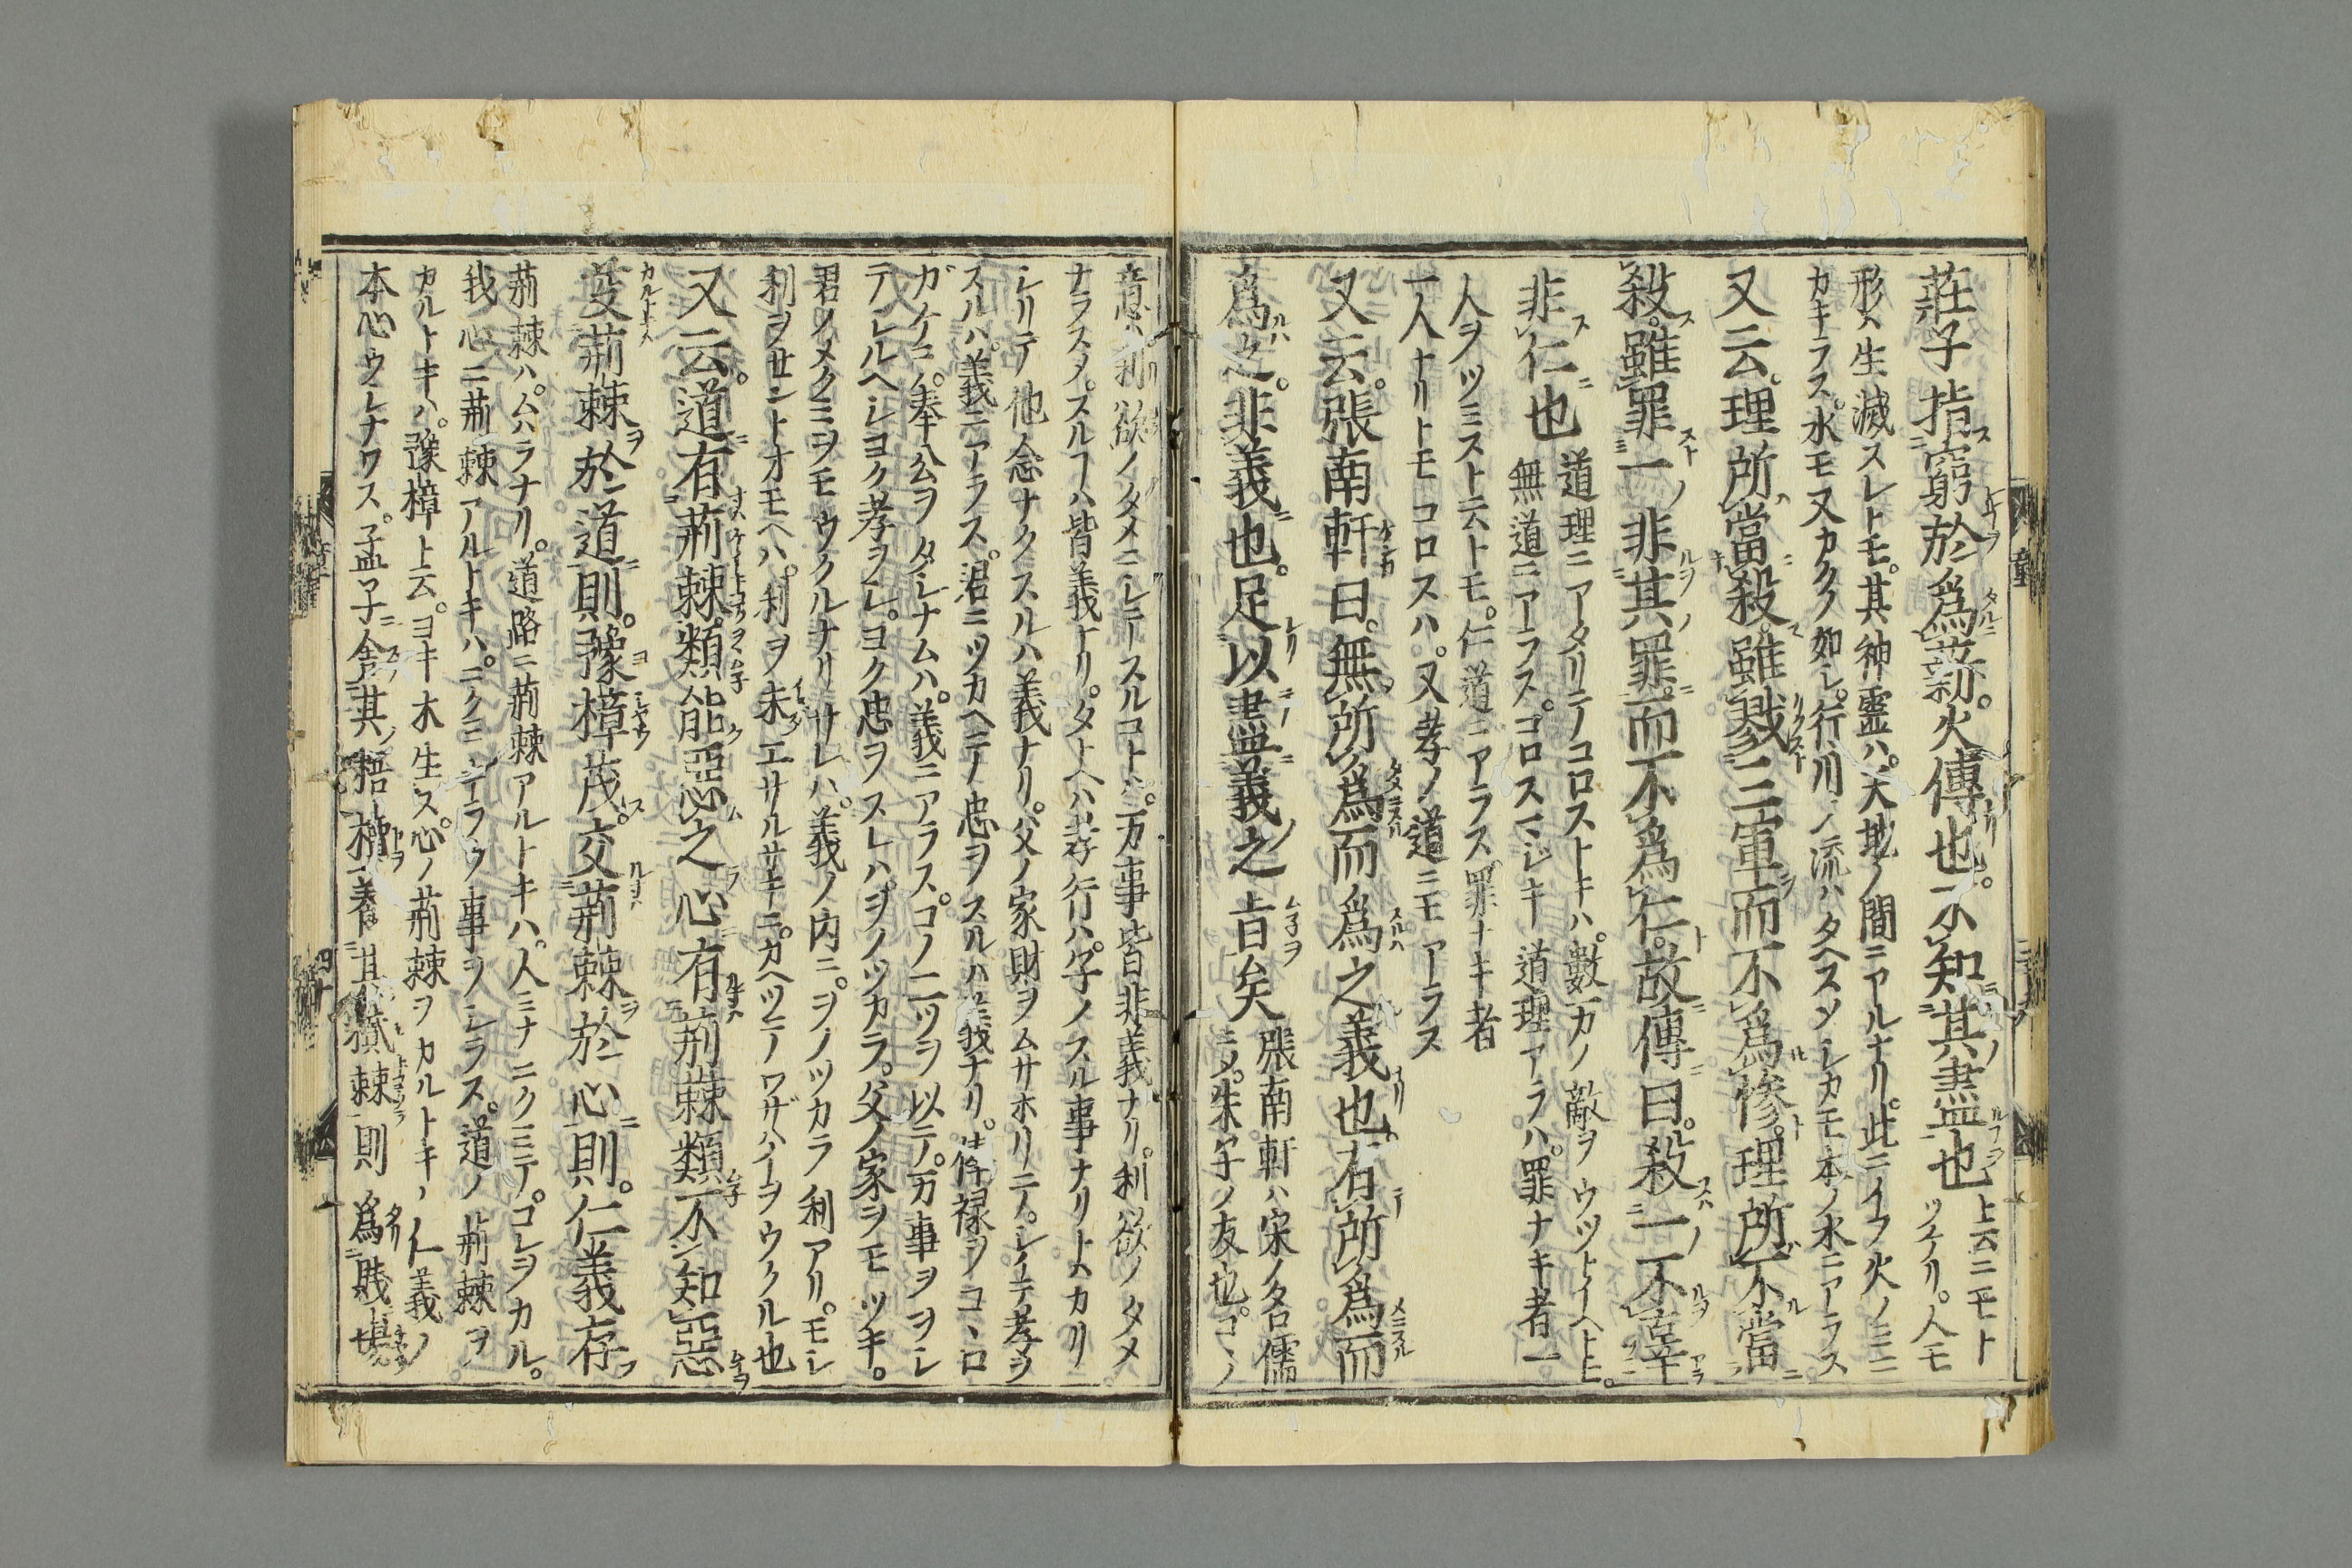 莊子指窮於爲薪。火傳也。不知其盡也
上云ニモト
ツタハリ。人モ
形ハ生滅スレトモ。其神霊ハ。天地ノ間ニアルナリ。此ニイフ火ノミニ
カキラス。水モ又カクノ如シ。行川ノ流ハタヘスシテシカモ本ノ水ニアラス
又云。理所當殺。雖戮三軍而不爲慘。理所不當
殺。雖罪一非其罪。而不爲仁。故傳曰。殺一不辜
非仁也
道理ニアータリテコロストキハ。數万ノ敵ヲウツトイヘトモ。
無道ニアーラス。コロスマジキ道理アラハ。罪ナキ者一
人ヲツミスト云トモ。仁道ニアラス。罪ナキ者
一人ナリトモコロスハ。又孝ノ道ニモアーラス
又云。張南軒曰。無所爲而爲之義也。有所爲而
爲之。非義也。足以盡義之旨矣
張南軒ハ宋ノ名儒
ニメ。朱子ノ友也。コヽノ
意ハ利欲ノタメニシテースルコトハ。万事皆非義ナリ。利欲ノタメ
ナラスメ。スルヿハ皆義ナリ。タトヘハ孝行ハ。子ノスル事ナリトハカリ
シリテ他念ナクスルハ義ナリ。父ノ家財ヲムサホリニメ。シイテ孝ヲ
スルハ。義ニアーラス。君ニツカヘテノ忠ヲスルハ義ナリ。俸禄ヲコヽロ
ガケテノ。奉公ヲタシナムハ。義ニアラス。コノ二ツヲ以テ。万事ヲヲシ
テシルヘシヨク孝ヲシ。ヨク忠ヲスレハ。ヲノツカラ。父ノ家ヲモツキ。
君ノメクミヲモウクルナリサレハ。義ノ内ニ。ヲノツカラ利アリ。モシ
利ヲサシトオモヘハ。利ヲ未エサルサキニ。カヘツテワザハイヲウクル也
又云。道有荊棘。類能惡之心有荊棘類不知惡
芟荊棘於道則。豫樟茂。交荊棘於心則。仁義存
荊棘ハ。ムハラナリ。道路ニ荊棘アルトキハ。人ミナニクミテ。コレヲカル。
我心ニ荊棘アルトキハ。ニクミキラウ事ヲシラス。道ノ荊棘ヲ
カルトキハ。豫樟ト云。ヨキ木生ス。心ノ荊棘ヲカルトキハ仁義ノ
本心ウシナワス。孟子ニ舎其梧檟養其樲棘則爲賤場